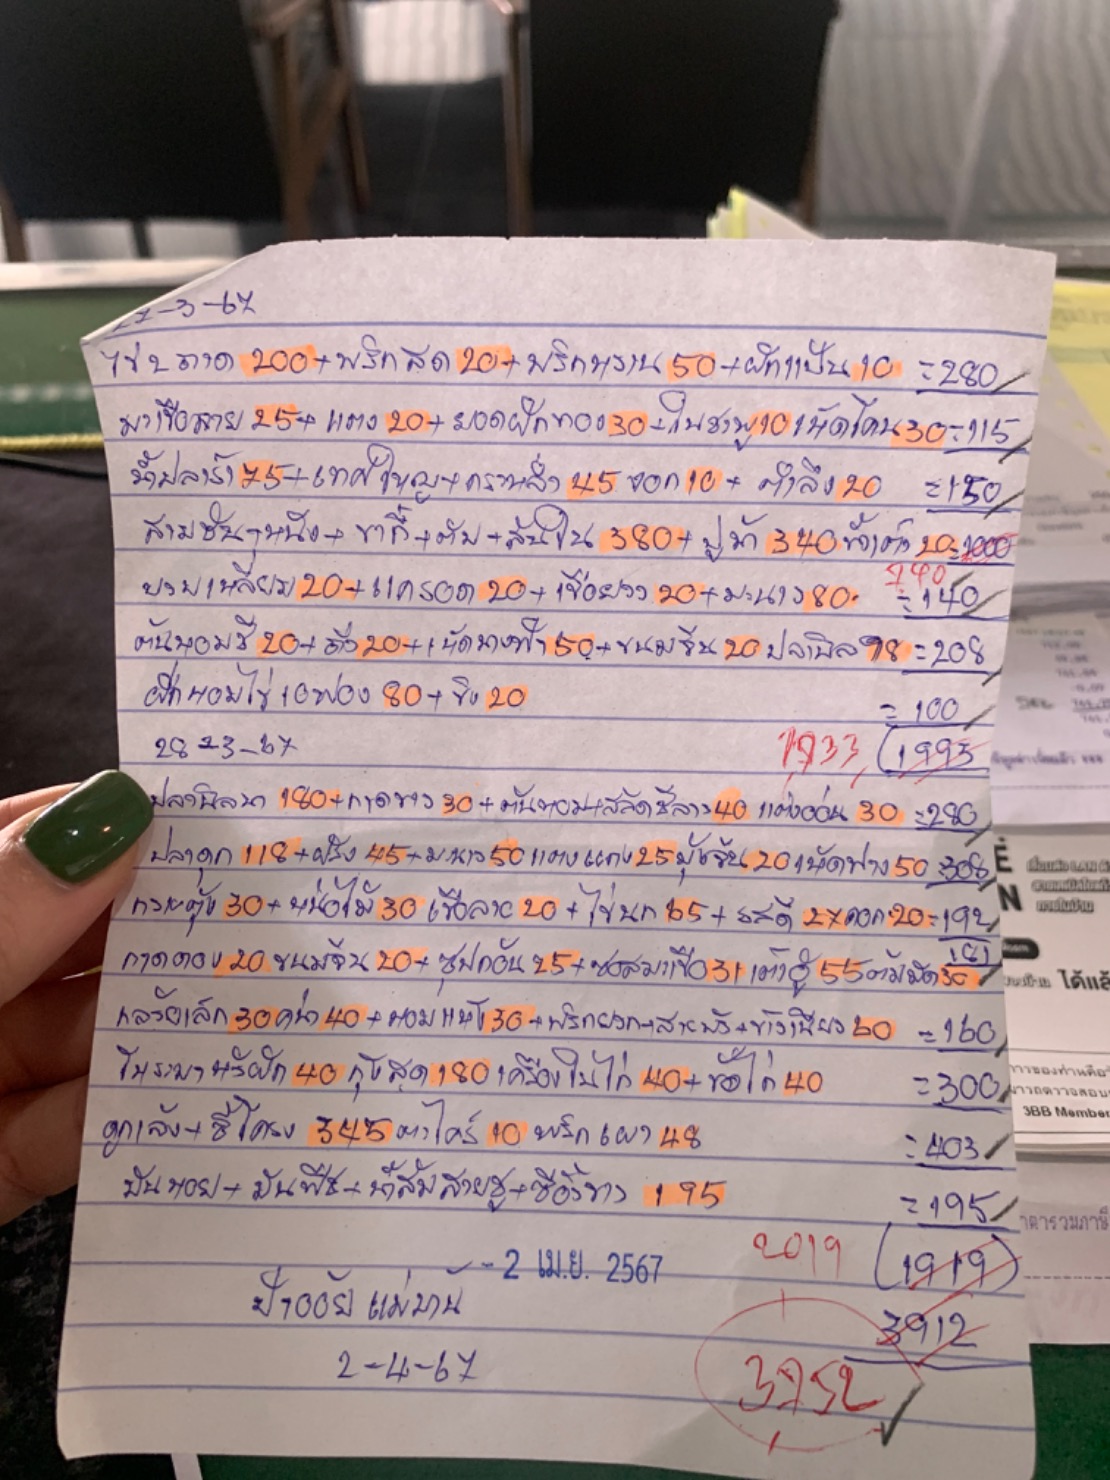 27-3-67
ไข่ 2 ถาด 200 + พริกสด 20 + พริกหวาน 50 + ผักแป้น 10 = 280
มะเขือลาย 25 + แตง 20 + ยอดฟักทอง 30 + ใบชะพู 10 เห็ดโคน 30 = 115
น้ำปลาร้า 75 + เทศใหญ่ + กวางตุ้ง 45 จอก 10 + ตำลึง 20 = 150
สามชั้น + หนัง + ขากี้ + ตับ + สันใน 380 + ปูม้า 340 20 = 1000
740
บวบเหลี่ยม 20 + แครอด 20 + เขือยาว 20 + มะนาว 80 = 140
ต้นหอมชี 20 + ถั่ว 20 + เห็ดนางฟ้า 50 + ขนมจีน 20 ปลานิล 98 = 208
ผักหอมไข่ 10 ฟอง 80 + ขิง 20 = 100
28-3-67 1733 (1993
ปลานิลนา 180 + กาดขาว 30 + ต้นหอม + สลัดชีลาว 40 แตงอ่อน 30 = 280
ปลาดุก 118 + ฝรั่ง 45 + มะนาว 50 แตงแกง 25 ผุ้งจีน 20 เห็ดฟาง 50 = 308
กวางตุ้ง 30 + หน่อไม้ 30 เขือลาย 20 + ไข่นก 65 + รสดี 27 ดอก 20 = 192
181
กาดดอง 20 ขนมจีน 20 + ซุปก้อน 25 + ซอสมะเขือ 31 เต้าหู้ 55 ต้มมัด 30
กล้วยเล็ก 30 คะน้า 40 + หอมแห้ง 30 + พริกยวก + สายบัว + ข้าวเหนียว 60 = 160
40 กุ้งสด 180 เครื่องในไก่ 40 + ข้อไก่ 40 = 300
ดูกเล้ง + ซี่โครง 345 ตะไคร้ 10 พริกเผา 48 = 403
มันหอย + มันพืช + น้ำส้มสายชู + ซีอิ้วขาว 195 = 195
2019 (1919)
- 2 เม.ย. 2567
ป้าออย แม่บ้าน 3912
2-4-67 3752
3BB Member